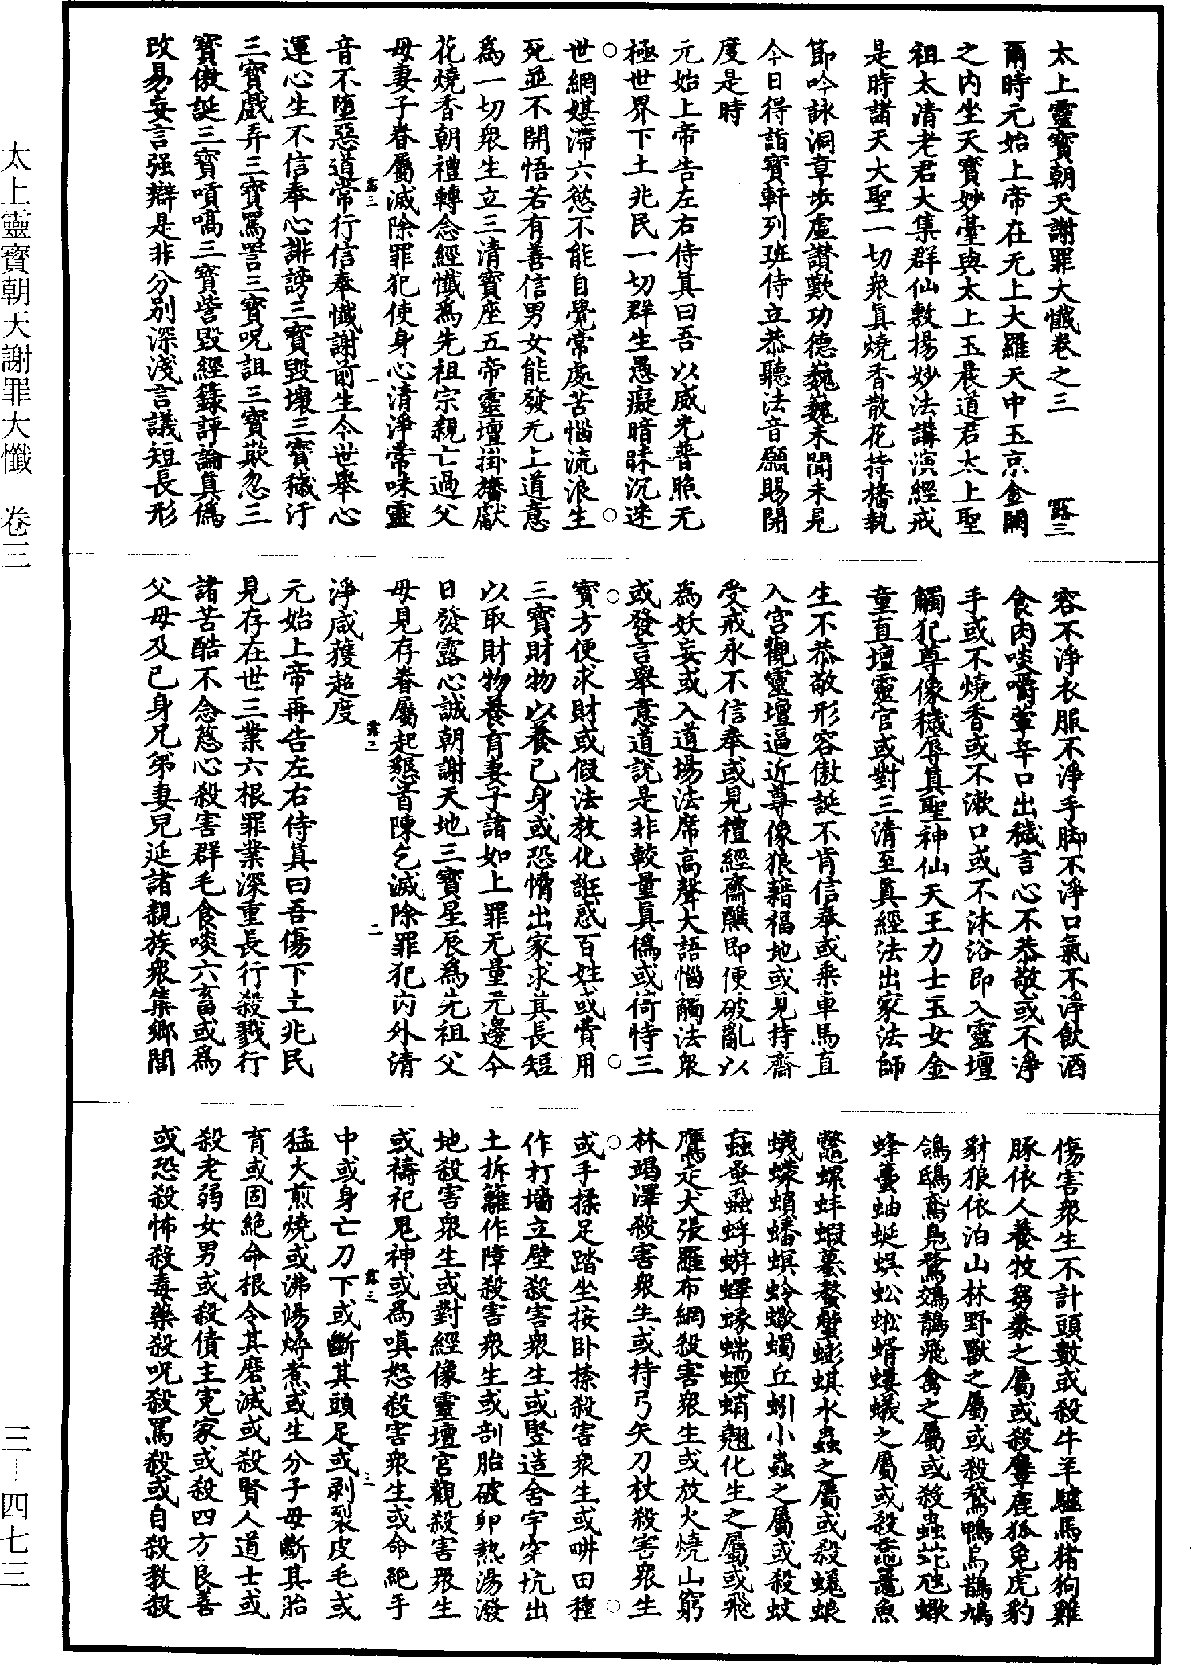 太上靈寶朝天謝罪大懺卷之三　路三
爾時元始上帝在无上大羅天中玉京金闕
之内坐天寶妙臺與太上玉晨道君太上聖
祖太清老君大集群仙敷揚妙法講演經戒
是時諸天大聖一切衆真燒香散花持旛執
節吟詠洞章步虛讚歎功德巍巍未聞未見
今日得詣寶軒列班侍立恭聽法音願賜開
度是時
元始上帝告左右侍真曰吾以威光普照无
極世界下土兆民一切群生愚癡暗昧沉迷
世網媒滯六慾不能自覺常處苦惱流浪生
死並不開悟若有善信男女能發无上道意
為一切衆生立三清寶座五帝靈壇掛旛獻
花燒香朝禮轉念經懺爲先祖宗親亡過父
母妻子眷屬滅除罪犯使身心清淨常味靈
路三　一
音不墮惡道常行信奉懺謝前生今世舉心
運心生不信奉心誹謗三寶毀壞三寶穢汙
三寶戲弄三寶罵詈三寶呪詛三寶欺忽三
寶傲誕三寶嗔嗃三寶訾毀經籙評論真僞
改易妄言强辯是非分別深淺言議短長形
容不淨衣服不淨手脚不淨口氣不淨飲酒
食肉啖嚼葷辛口出穢言心不恭敬或不淨
手或不燒香或不漱口或不沐浴即入靈壇
觸犯尊像穢辱真聖神仙天王力士玉女金
童直壇靈官或對三清至真經法出家法師
生不恭敬形容傲誕不肯信奉或乘車馬直
入宫觀靈壇逼近尊像狼藉福地或見持齋
受戒永不信奉或見禮經齋醮即便破亂以
為妖妄或入道場法席高聲大語惱觸法衆
或發言舉意道說是非較量真僞或倚恃三
寶方便求財或假法教化誑惑百姓或費用
三寶財物以養已身或恐懼出家求其長短
以取財物養育妻子諸如上罪无量无邊今
日發露心誠朝謝天地三寶星辰爲先祖父
母見存眷屬起懇首陳乞滅除罪犯内外清
路三　二
淨咸獲超度
元始上帝再告左右侍真曰吾傷下土兆民
見存在世三業六根罪業深重長行殺戮行
諸苦酷不念慈心殺害群毛食啖六畜或爲
父母及已身兄弟妻兒延諸親族衆集鄉閭
傷害衆生不計頭數或殺牛羊驢馬猪狗雞
豚依人養牧芻豢之屬或殺麞鹿狐兔虎豹
豺狼依泊山林野獸之屬或殺鵞鴨烏鵲鳩
鴿鴟鳶鳧鶩鴻鵠飛禽之屬或殺蟲蛇虺蠍
蜂蠆蚰蜒蜈蚣蚍蝑螻蟻之屬或殺黿鼉魚
鼈螺蚌蝦蟇螯蟹蟛蜞水蟲之屬或殺蟣蜋
蟻蠓蛸蟠螟蛉蠍蠋丘蚓小蟲之屬或殺蚊
蝱蚤蝨蜉蝣蠌蝝蠕蝡蛸翹化生之屬或飛
鷹走犬張羅布網殺害衆生或放火燒山窮
林竭澤殺害衆生或持弓矢刀杖殺害衆生
或手揉足踏坐按卧搽殺害衆生或畊田種
作打墻立壁殺害衆生或豎造舍宇穿坑出
土拆籬作障殺害衆生或剖胎破卵熱湯潑
地殺害衆生或對經像靈壇宮觀殺害衆生
或禱祀鬼神或爲嗔怒殺害衆生或命絕手
路三　三
中或身亡刀下或斷其頭足或剥裂皮毛或
猛火煎燒或沸湯燖煮或生分子母斷其胎
育或固絕命根令其磨滅或殺賢人道士或
殺老弱女男或殺債主冤家或殺四方良善
或恐殺怖殺毒藥殺呪殺罵殺或自殺教殺
太上靈寶朝天謝罪大懺　卷三
三—四七三